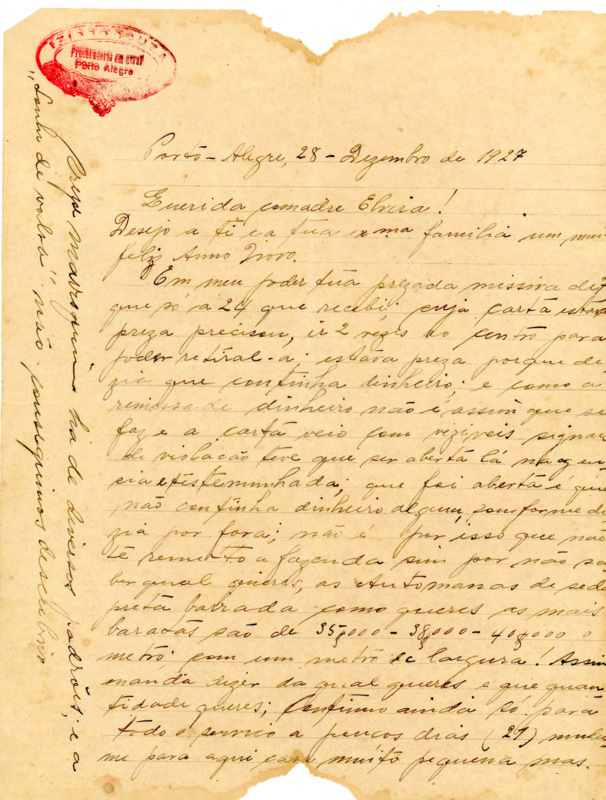 Porto Alegre
Porto-Alegre, 28-Dezembro de 1927
Querida comadre Elvira!
Desejo a ti e a tua exma familia um mui
feliz Anno Novo.
Em meu poder tua prezada missiva de
que só a 24 que recebi; cuja carta estava
preza precisou, ir 2 vezes ao centro para
poder retiral-a; estava preza porque de
zia que continha dinheiro; e como a
remessa de dinheiro não é, assim que se
faz e a carta veio com vizíveis signaes
de violação teve que ser aberta lá na gen
cia e tisteminhada; que foi aberta é que
não continha dinheiro algum, comforme di
zia por fora; não é por isso que não
te remetto a fazenda sim por não sa
ber qual queres, as Automanas de seda
preta barrada como queres as mais
baratas são de 35,000-38,000-40,000 o
metro com um metro de largura! Assim
manda dizer da qual queres e que quan
tidade queres; Continuo ainda só para
todo o serviço a poucos dias (21) mudei
me para aqui casa muito pequena mas.
ha de diversos padrões; e a
de valsa" não conseguimos descubrir